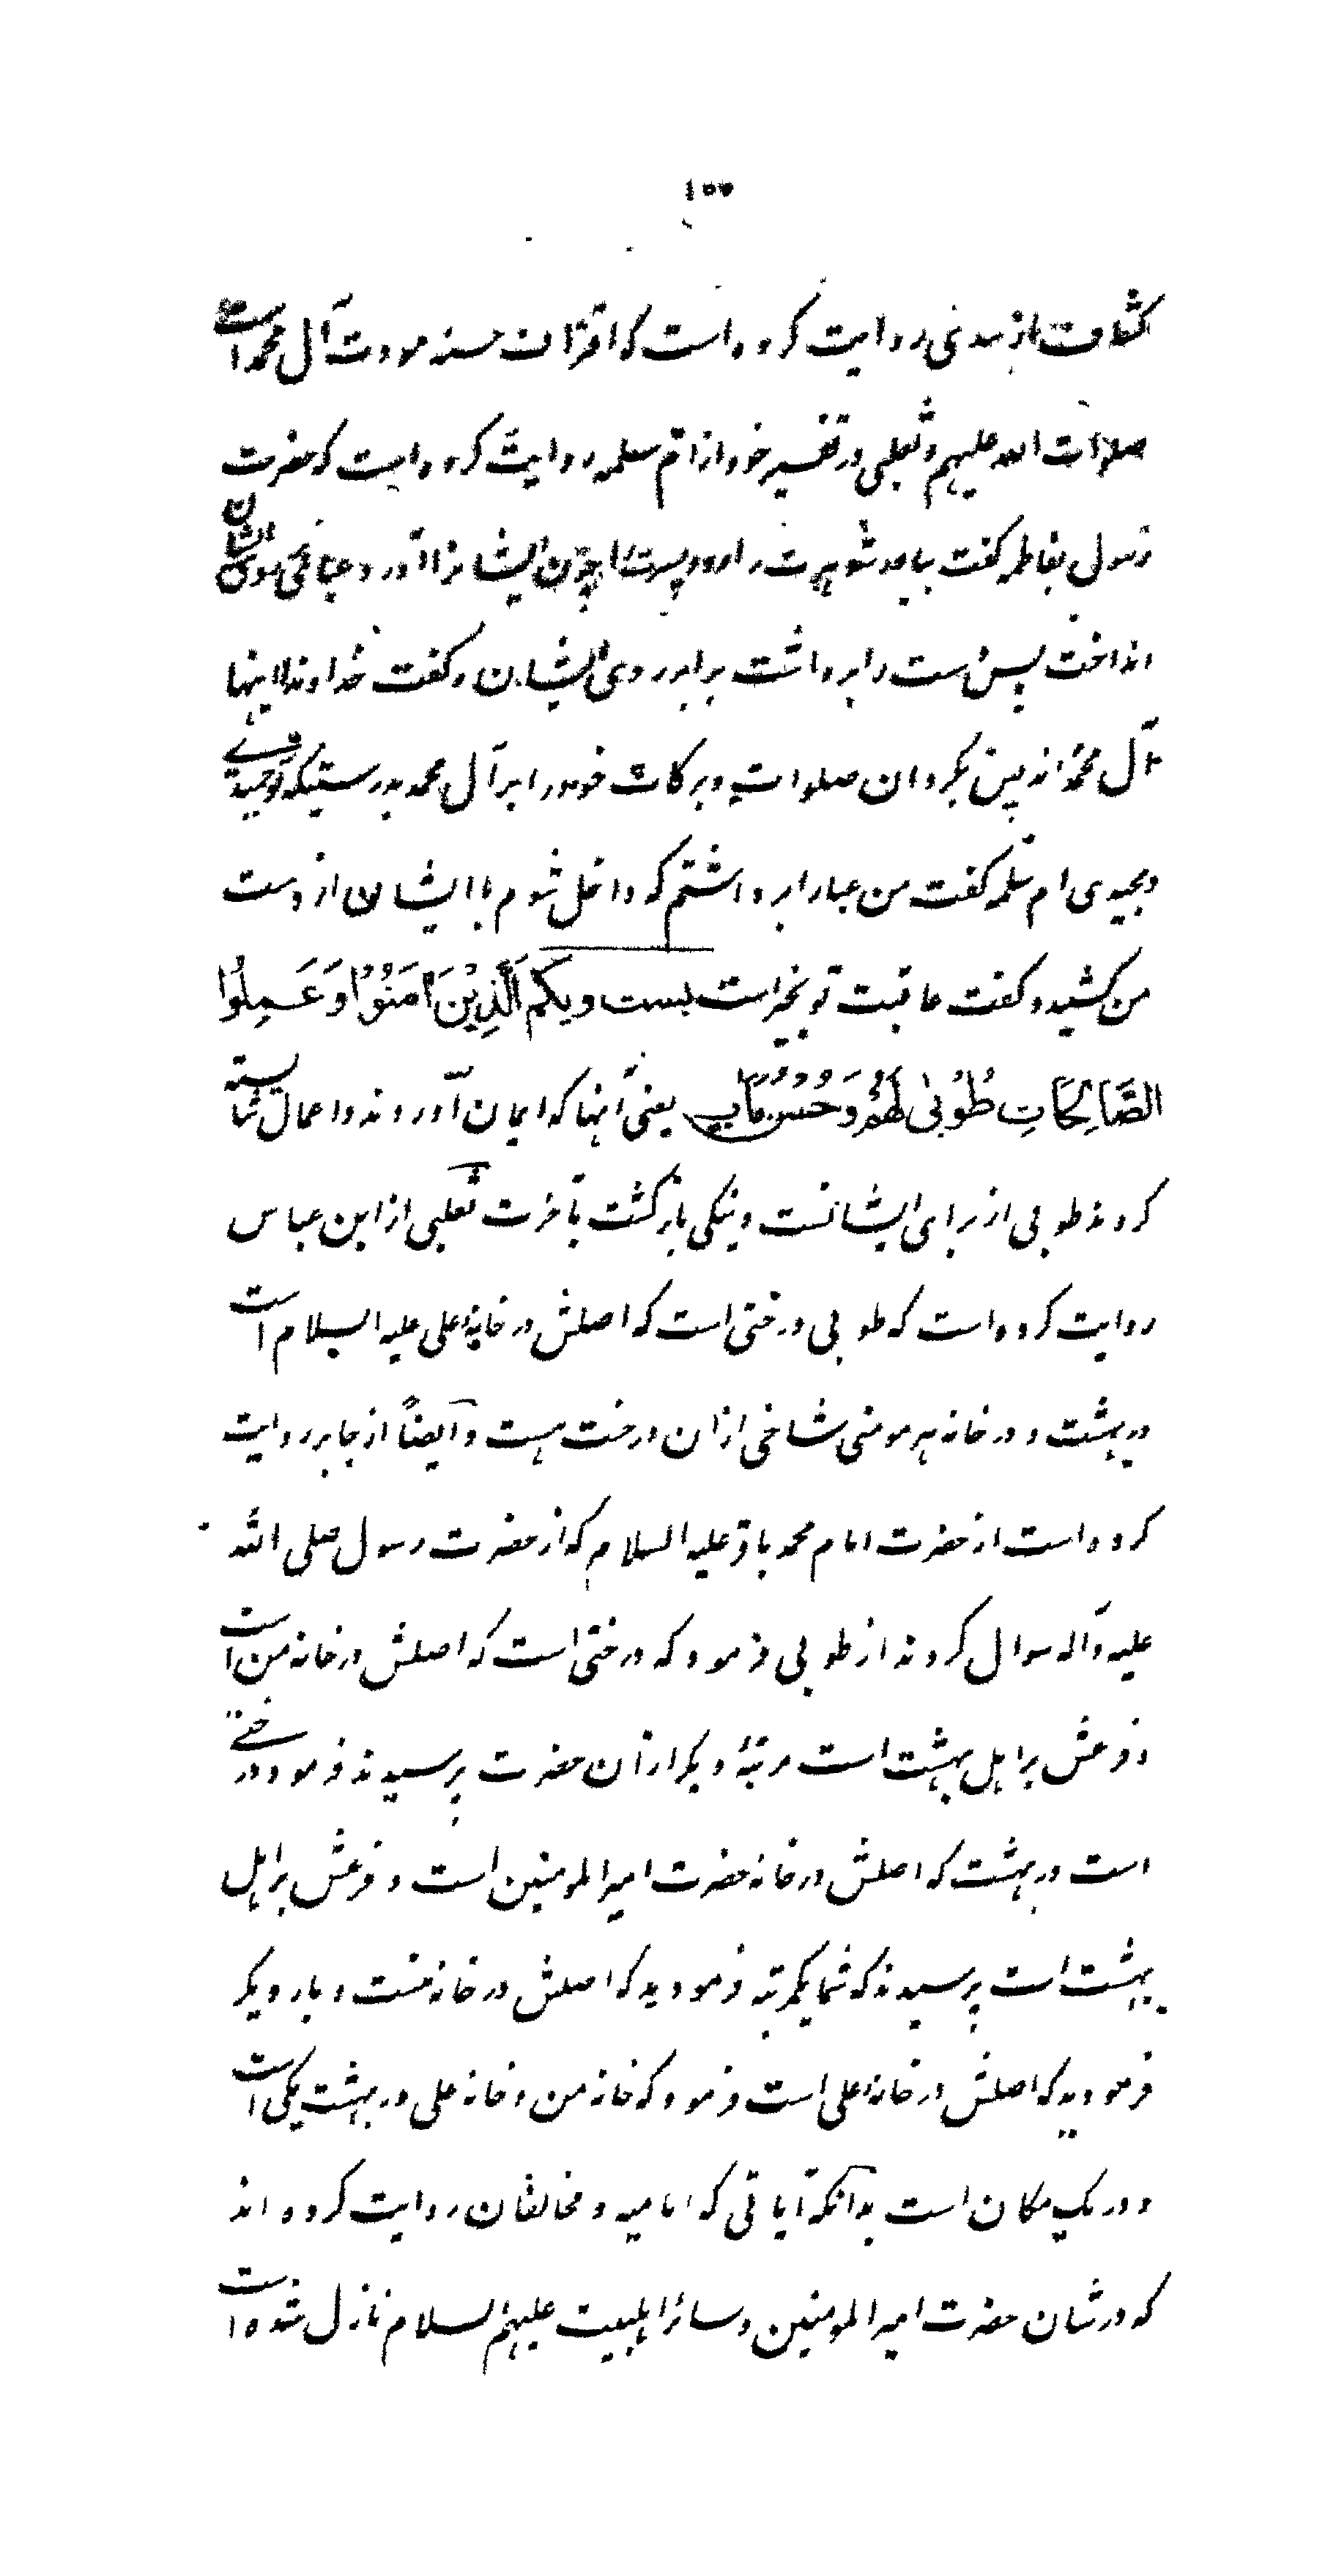 ١٠٠
کشاف از سدی روایت کرده است که اقتراف حسنه مودت آل محمد است
صلوات الله علیهم و ثعلبی در تفسیر خود از ام سلمه روایت کرده است که حضرت
رسول بفاطمه گفت بیاور شوهرت را و دو پسرت را چون ایشانرا آورد عبائی بروی ایشان
انداخت پس دست را برداشت برابر روی ایشان و گفت خداوندا اینها
آل محمد اند پس بگردان صلوات و برکات خود را بر آل محمد بدرستیکه تو حمیدی
و مجیدی ام سلمه گفت من عبا را برداشتم که داخل شوم با ایشان از دست
من کشید و گفت عاقبت تو بخیر است بیست و یکم الَّذِیْنَ اٰمَنُوْا وَ عَمِلُوا
الصَّالِحَاتِ طُوْبٰی لَهُمْ وَ حُسْنُ مَاٰبٍ یعنی آنها که ایمان آوردند و اعمال شایسته
کردند طوبی از برای ایشانست و نیکی بازگشت بآخرت ثعلبی از ابن عباس
روایت کرده است که طوبی درختی است که اصلش در خانهٔ علی علیه السلام است
در بهشت و در خانه هر مومنی شاخی از ان درخت هست و ایضاً از جابر روایت
کرده است از حضرت امام محمد باقر علیه السلام که از حضرت رسول صلی الله
علیه و آله سوال کردند از طوبی فرمود که درختی است که اصلش در خانه من است
و فرعش بر اهل بهشت است مرتبهٔ دیگر از آن حضرت پرسیدند فرمود درختی
است در بهشت که اصلش در خانه حضرت امیر المومنین است و فرعش بر اهل
بهشت است پرسیدند که شما یکمرتبه فرمودید که اصلش در خانه منست و بار دیگر
فرمودید که اصلش در خانهٔ علی است فرمود که خانه من و خانه علی در بهشت یکی است
و در یک مکان است بدانکه آیاتی که امامیه و مخالفان روایت کرده اند
که در شان حضرت امیر المومنین و سائر اهلبیت علیهم السلام نازل شده است